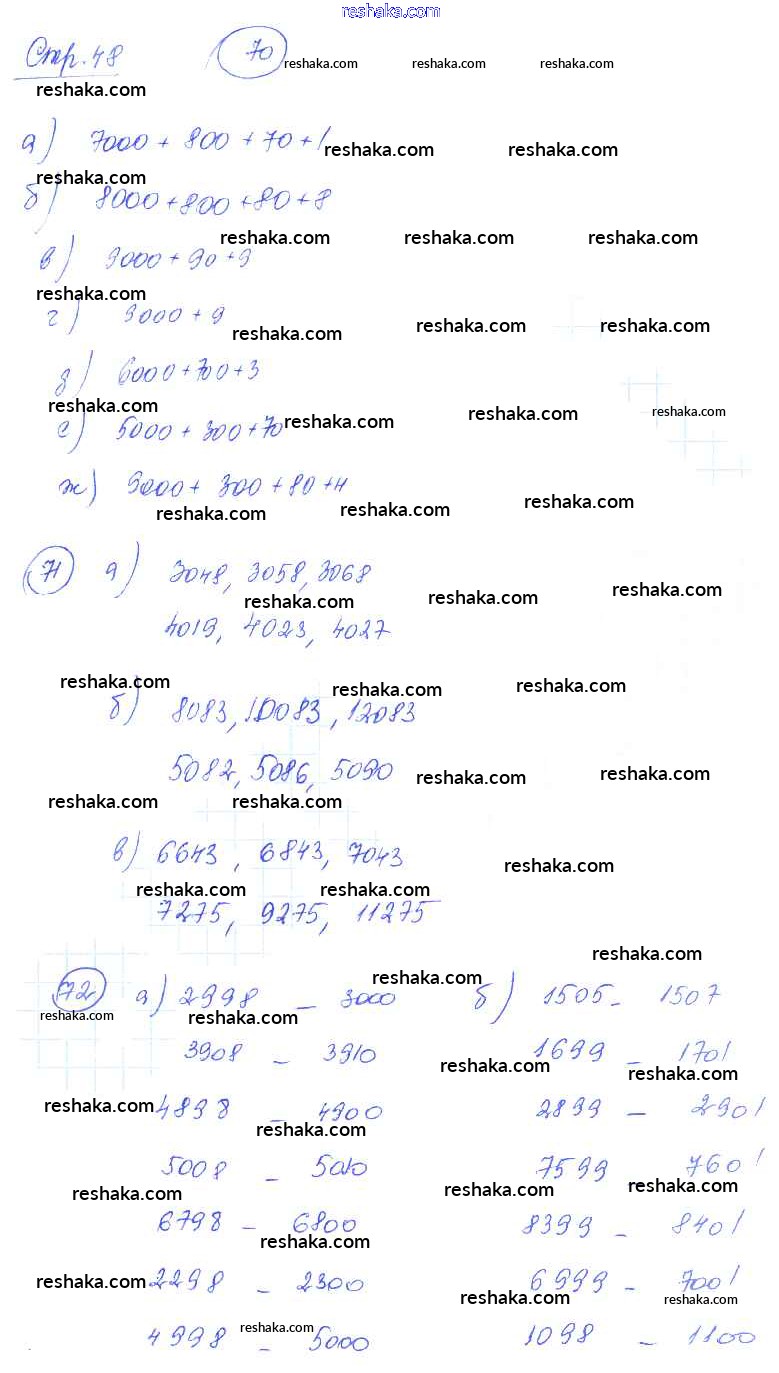 reshaka.com
Стр. 48 70 reshaka.com reshaka.com reshaka.com
reshaka.com
а) 7000 + 800 + 70 + 1 reshaka.com reshaka.com
reshaka.com
б) 8000 + 800 + 80 + 8
reshaka.com reshaka.com reshaka.com
в) 9000 + 90 + 9
reshaka.com
г) 9000 + 9 reshaka.com reshaka.com reshaka.com
д) 6000 + 700 + 3
reshaka.com reshaka.com reshaka.com reshaka.com
е) 5000 + 300 + 70
ж) 9000 + 300 + 80 + 4
reshaka.com reshaka.com reshaka.com
71 а) 3048, 3058, 3068
reshaka.com reshaka.com reshaka.com
4019, 4023, 4027
reshaka.com reshaka.com reshaka.com
б) 8083, 10083, 12083
5082, 5086, 5090 reshaka.com reshaka.com
reshaka.com reshaka.com
в) 6643, 6843, 7043 reshaka.com
reshaka.com reshaka.com
7275, 9275, 11275
reshaka.com
reshaka.com
72 а) 2998 – 3000 б) 1505 – 1507
reshaka.com reshaka.com
3908 – 3910 1699 – 1701
reshaka.com reshaka.com
reshaka.com 4898 – 4900 2899 – 2901
reshaka.com
5008 – 5010 7599 – 7601
reshaka.com reshaka.com reshaka.com
6798 – 6800 8399 – 8401
reshaka.com
reshaka.com 2298 – 2300 6999 – 7001
reshaka.com reshaka.com
reshaka.com
4998 – 5000 1098 – 1100